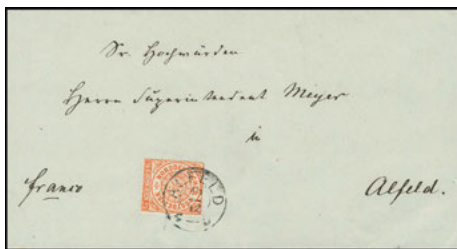 Sr. Hochwürden
Herrn Superintendent Meyer
in
franco
Alfeld.
ALFELD